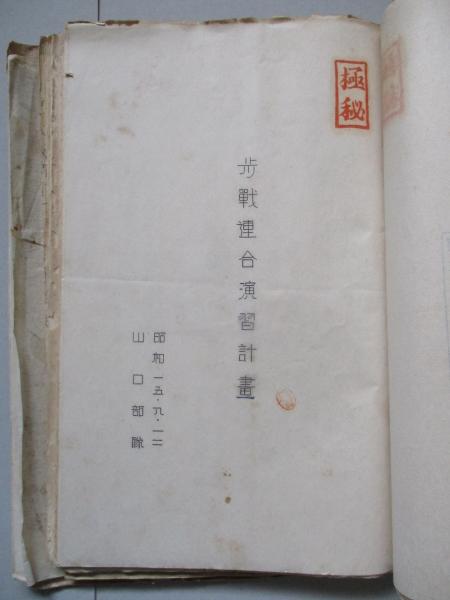 極秘
歩戰連合演習計畫
昭和一五・九・一二
山口部隊